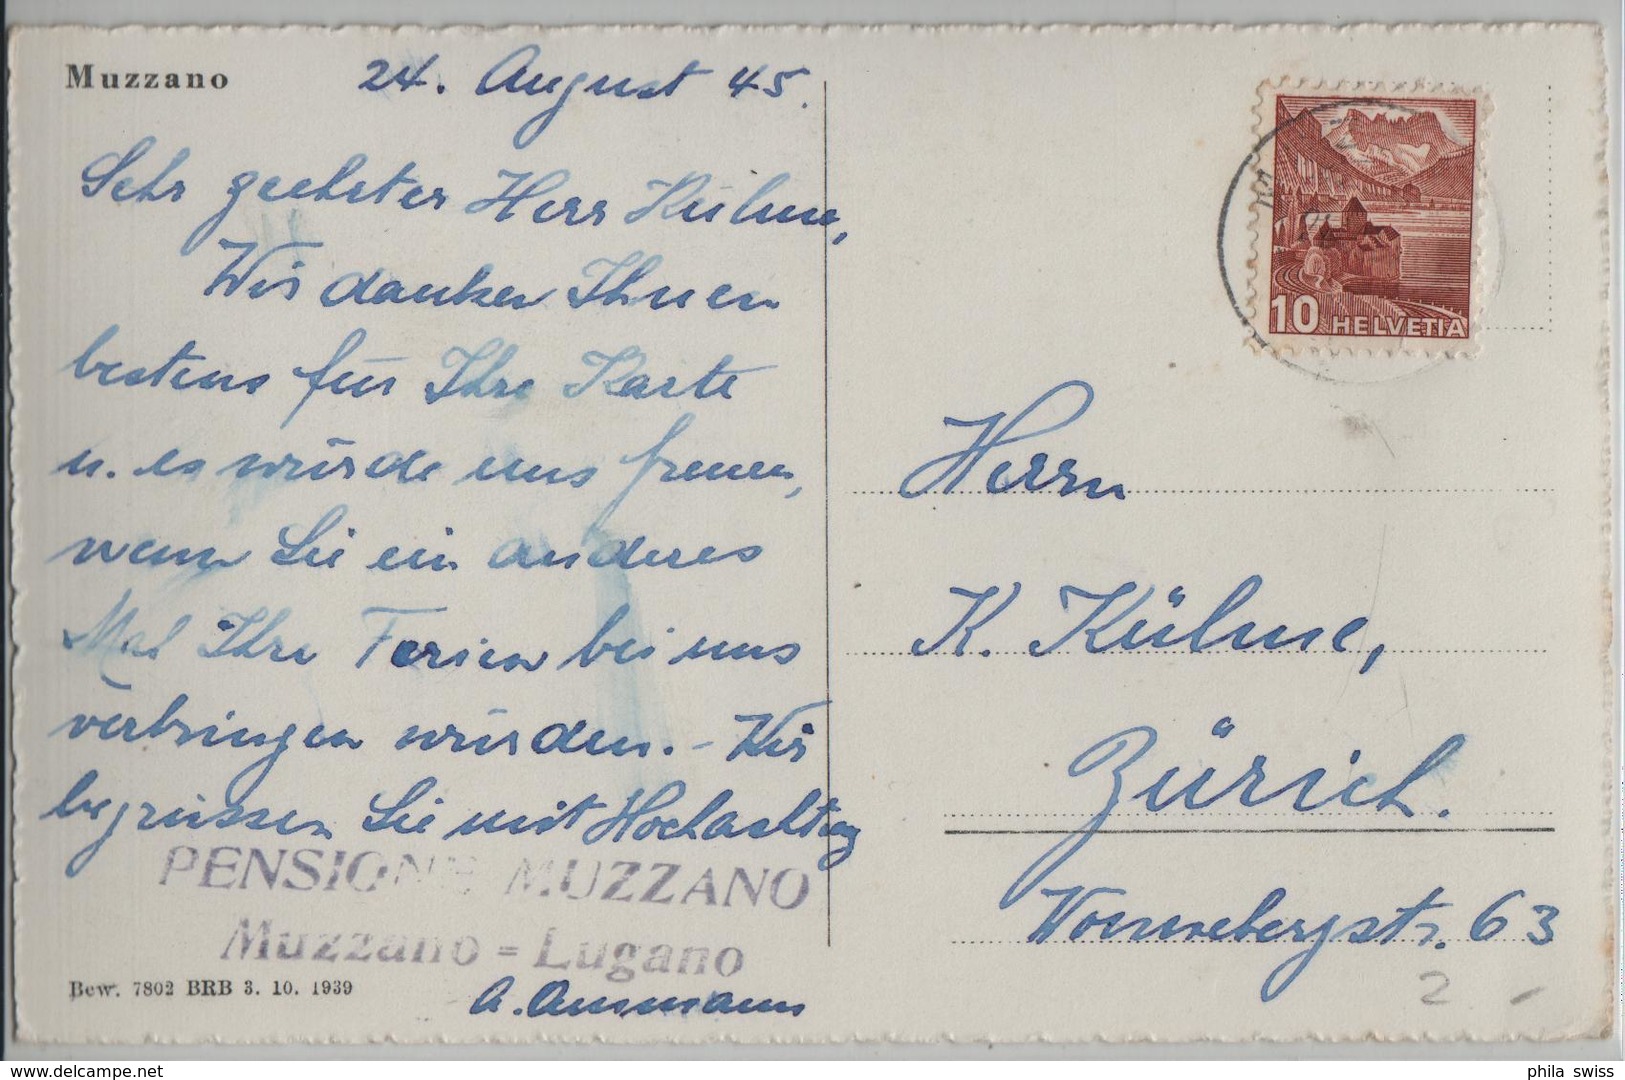 Muzzano
24. August 45.
Sehr geehrter Herr Kühne,
Wir danken Ihnen
bestens für Ihre Karte
u. es würde uns freuen,
wenn Sie ein anderes
Mal Ihre Ferien bei uns
verbringen würden. - Wir
begrüssen Sie mit Hochachtung
PENSIONE MUZZANO
Muzzano = Lugano
Bew. 7802 BRB 3. 10. 1939
10 HELVETIA
Herrn
K. Kühne,
Zürich.
Wonnebergstr. 63
2.-
delcampe.net
phila swiss